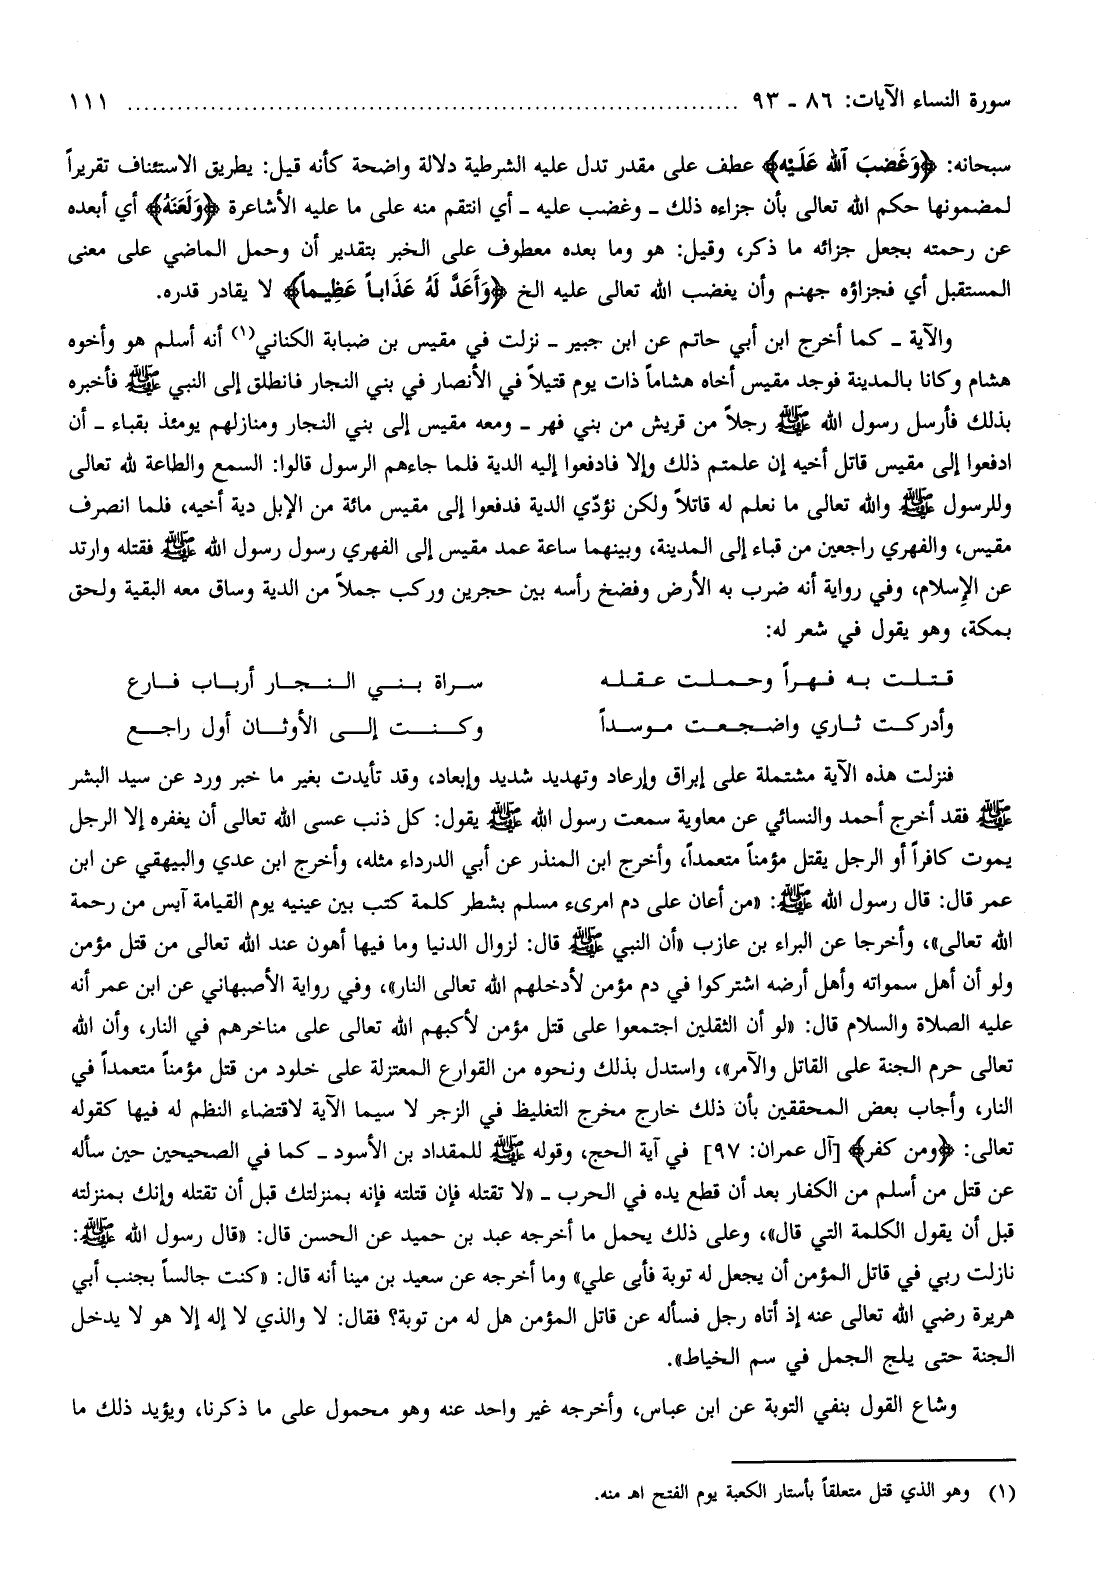 سورة النساء الآيات: ٨٦ ـ ٩٣ ........................................................................ ١١١
سبحانه: ﴿وَغَضبَ ٱلله عَلَيْه﴾ عطف على مقدر تدل عليه الشرطية دلالة واضحة كأنه قيل: بطريق الاستئناف تقريراً
لمضمونها حكم الله تعالى بأن جزاءه ذلك ـ وغضب عليه ـ أي انتقم منه على ما عليه الأشاعرة ﴿وَلَعَنَهُ﴾ أي أبعده
عن رحمته بجعل جزائه ما ذكر، وقيل: هو وما بعده معطوف على الخبر بتقدير أن وحمل الماضي على معنى
المستقبل أي فجزاؤه جهنم وأن يغضب الله تعالى عليه الخ ﴿وَأَعَدَّ لَهُ عَذَاباً عَظِيماً﴾ لا يقادر قدره.
والآية ـ كما أخرج ابن أبي حاتم عن ابن جبير ـ نزلت في مقيس بن ضبابة الكناني(١) أنه أسلم هو وأخوه
هشام وكانا بالمدينة فوجد مقيس أخاه هشاماً ذات يوم قتيلاً في الأنصار في بني النجار فانطلق إلى النبي ﷺ فأخبره
بذلك فأرسل رسول الله ﷺ رجلاً من قريش من بني فهر ـ ومعه مقيس إلى بني النجار ومنازلهم يومئذ بقباء ـ أن
ادفعوا إلى مقيس قاتل أخيه إن علمتم ذلك وإلا فادفعوا إليه الدية فلما جاءهم الرسول قالوا: السمع والطاعة لله تعالى
وللرسول ﷺ والله تعالى ما نعلم له قاتلاً ولكن نؤدّي الدية فدفعوا إلى مقيس مائة من الإبل دية أخيه، فلما انصرف
مقيس، والفهري راجعين من قباء إلى المدينة، وبينهما ساعة عمد مقيس إلى الفهري رسول رسول الله ﷺ فقتله وارتد
عن الإسلام، وفي رواية أنه ضرب به الأرض وفضخ رأسه بين حجرين وركب جملاً من الدية وساق معه البقية ولحق
بمكة، وهو يقول في شعر له:
قتلت به فهراً وحملت عقله سراة بني النجار أرباب فارع
وأدركت ثاري واضجعت موسداً وكنت إلى الأوثان أول راجع
فنزلت هذه الآية مشتملة على إبراق وإرعاد وتهديد شديد وإبعاد، وقد تأيدت بغير ما خبر ورد عن سيد البشر
ﷺ فقد أخرج أحمد والنسائي عن معاوية سمعت رسول الله ﷺ يقول: كل ذنب عسى الله تعالى أن يغفره إلا الرجل
يموت كافراً أو الرجل يقتل مؤمناً متعمداً، وأخرج ابن المنذر عن أبي الدرداء مثله، وأخرج ابن عدي والبيهقي عن ابن
عمر قال: قال رسول الله ﷺ: «من أعان على دم امرىء مسلم بشطر كلمة كتب بين عينيه يوم القيامة آيس من رحمة
الله تعالى»، وأخرجا عن البراء بن عازب «أن النبي ﷺ قال: لزوال الدنيا وما فيها أهون عند الله تعالى من قتل مؤمن
ولو أن أهل سمواته وأهل أرضه اشتركوا في دم مؤمن لأدخلهم الله تعالى النار»، وفي رواية الأصبهاني عن ابن عمر أنه
عليه الصلاة والسلام قال: «لو أن الثقلين اجتمعوا على قتل مؤمن لأكبهم الله تعالى على مناخرهم في النار، وأن الله
تعالى حرم الجنة على القاتل والآمر»، واستدل بذلك ونحوه من القوارع المعتزلة على خلود من قتل مؤمناً متعمداً في
النار، وأجاب بعض المحققين بأن ذلك خارج مخرج التغليظ في الزجر لا سيما الآية لاقتضاء النظم له فيها كقوله
تعالى: ﴿ومن كفر﴾ [آل عمران: ٩٧] في آية الحج، وقوله ﷺ للمقداد بن الأسود ـ كما في الصحيحين حين سأله
عن قتل من أسلم من الكفار بعد أن قطع يده في الحرب ـ «لا تقتله فإن قتلته فإنه بمنزلتك قبل أن تقتله وإنك بمنزلته
قبل أن يقول الكلمة التي قال»، وعلى ذلك يحمل ما أخرجه عبد بن حميد عن الحسن قال: «قال رسول الله ﷺ:
نازلت ربي في قاتل المؤمن أن يجعل له توبة فأبى علي» وما أخرجه عن سعيد بن مينا أنه قال: «كنت جالساً بجنب أبي
هريرة رضي الله تعالى عنه إذ أتاه رجل فسأله عن قاتل المؤمن هل له من توبة؟ فقال: لا والذي لا إله إلا هو لا يدخل
الجنة حتى يلج الجمل في سم الخياط».
وشاع القول بنفي التوبة عن ابن عباس، وأخرجه غير واحد عنه وهو محمول على ما ذكرنا، ويؤيد ذلك ما
(١) وهو الذي قتل متعلقاً بأستار الكعبة يوم الفتح اهـ منه.